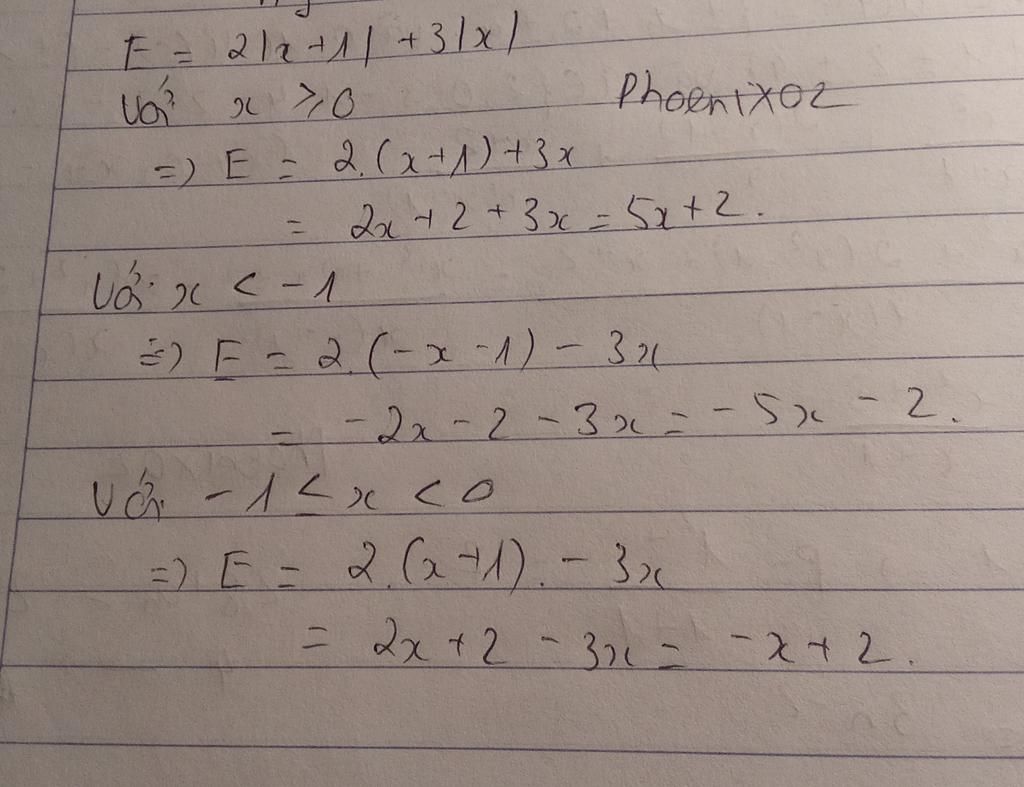 E = 2|x+1| + 3|x|
Với x ≥ 0
Phoenix02
=> E = 2.(x+1)+3x
= 2x + 2 + 3x = 5x + 2.
Với x < -1
=> E = 2.(-x -1) - 3x
= -2x - 2 - 3x = -5x - 2.
Với -1 ≤ x < 0
=> E = 2.(x+1). - 3x
= 2x + 2 - 3x = -x + 2.